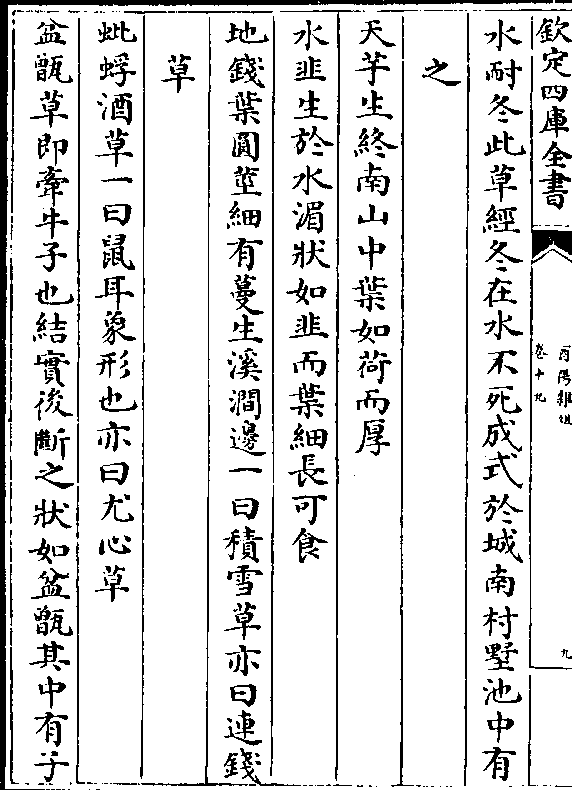 欽定四庫全書
酉陽雜俎
卷十九
九
水耐冬此草經冬在水不死成式於城南村墅池中有
之
天芋生終南山中葉如荷而厚
水韭生於水湄狀如韭而葉細長可食
地錢葉圓莖細有蔓生溪澗邊一曰積雪草亦曰連錢
草
蚍蜉酒草一曰鼠耳象形也亦曰尤心草
盆甑草即牽牛子也結實後斷之狀如盆甑其中有子